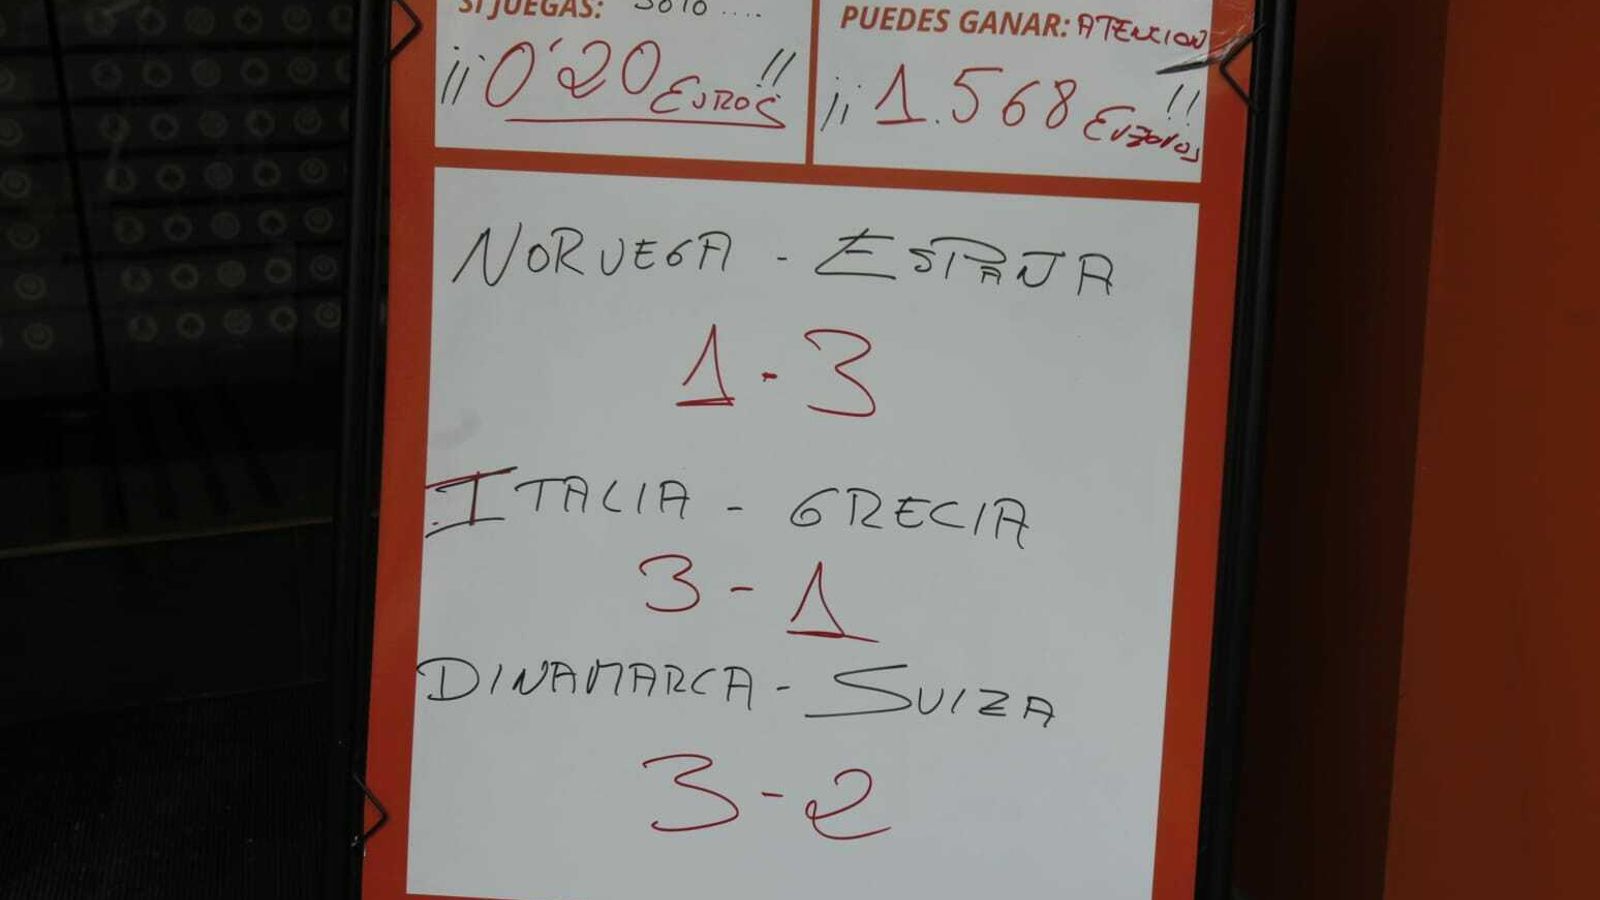 SI JUEGAS: SOLO ....
¡¡0'20 EUROS!!
PUEDES GANAR: ATENCION
¡¡1.568 EUROS!!
NORUEGA - ESPAÑA
1 - 3
ITALIA - GRECIA
3 - 1
DINAMARCA - SUIZA
3 - 2